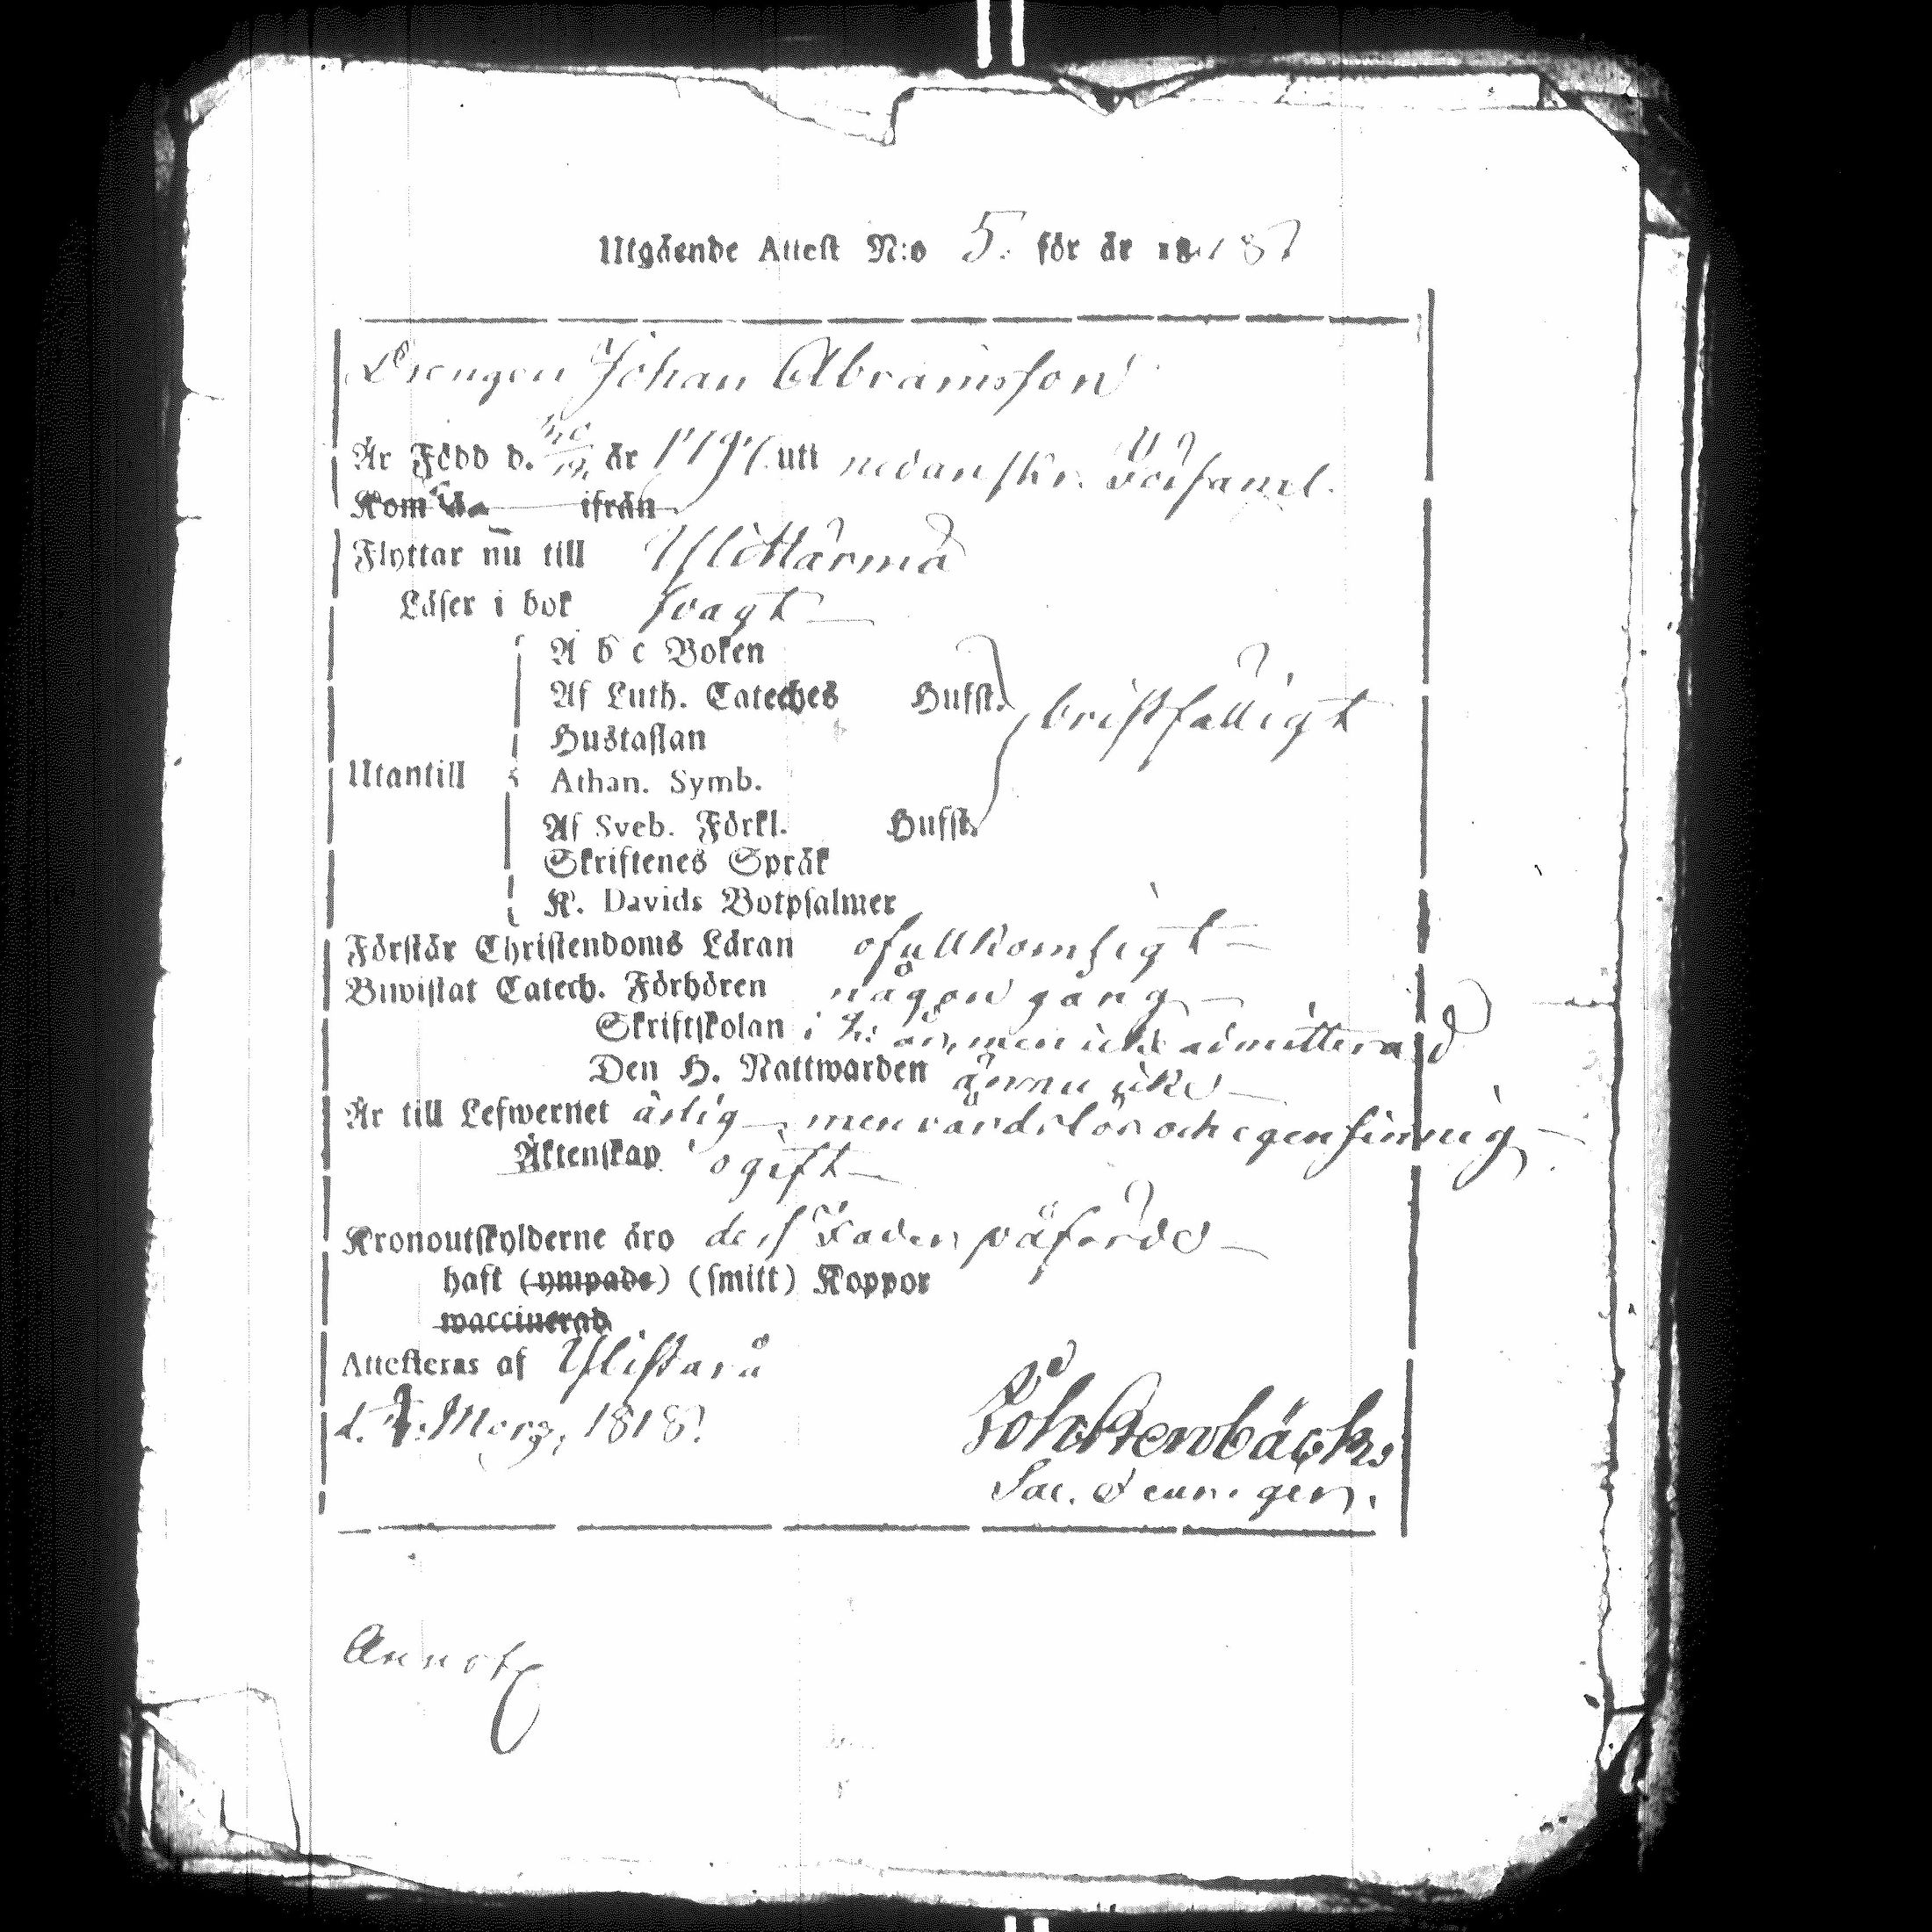 Utgående Attest N:o 5. för år 1818
Drengen Johan Abramsson
Är Född d. år 179 uti nedanskr. Församl.
Kom d. ifrån
Flyttar nu till Ylihärmä
Läser i bok svagt
A b c Boken
Af Luth. Cateches Hufst. bristfälligt
Hustaflan
Utantill Athan. Symb.
Af Sveb. Förkl. Hufst.
Skriftenes Språk
K. Davids Botpsalmer
Förstår Christendoms Läran ofullkomligt
Biwistat Catech. Förhören någon gång
Skriftskolan i år, men icke admitterad
Den H. Nattwarden ännu icke
Är till Lefwernet ärlig, men vårdslös och egensinnig
Äktenskap ogift
Kronoutskylderne äro dess Fader påförde
haft (ympade) (smitt) Koppor
waccinerad
Attesteras af Ylistaro
d. Marz, 1818.
Joh. Stenbäck,
Sac.
Annot